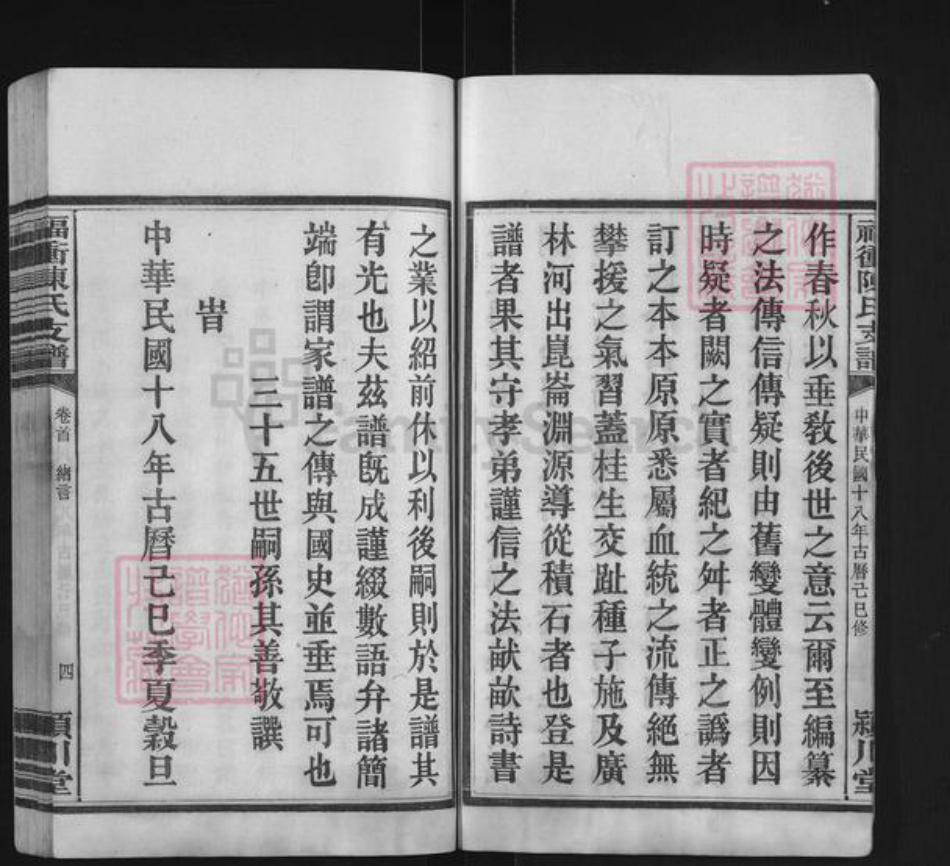 福衝陳氏支譜
中華民國十八年古曆己巳修
潁川堂
作春秋以垂敎後世之意云爾至編纂
之法傳信傳疑則由舊變體變例則因
時疑者闕之實者紀之舛者正之譌者
訂之本本原原悉屬血統之流傳絕無
攀援之氣習蓋桂生交趾種子施及廣
林河出崑崙淵源導從積石者也登是
譜者果其守孝弟謹信之法猷畝詩書
之業以紹前休以利後嗣則於是譜其
有光也夫茲譜旣成謹綴數語弁諸簡
端卽謂家譜之傳與國史並垂焉可也
三十五世嗣孫其善敬譔
旹
中華民國十八年古曆己巳季夏穀旦
福衝陳氏支譜
卷首
緒言
四
潁川堂
FamilySearch